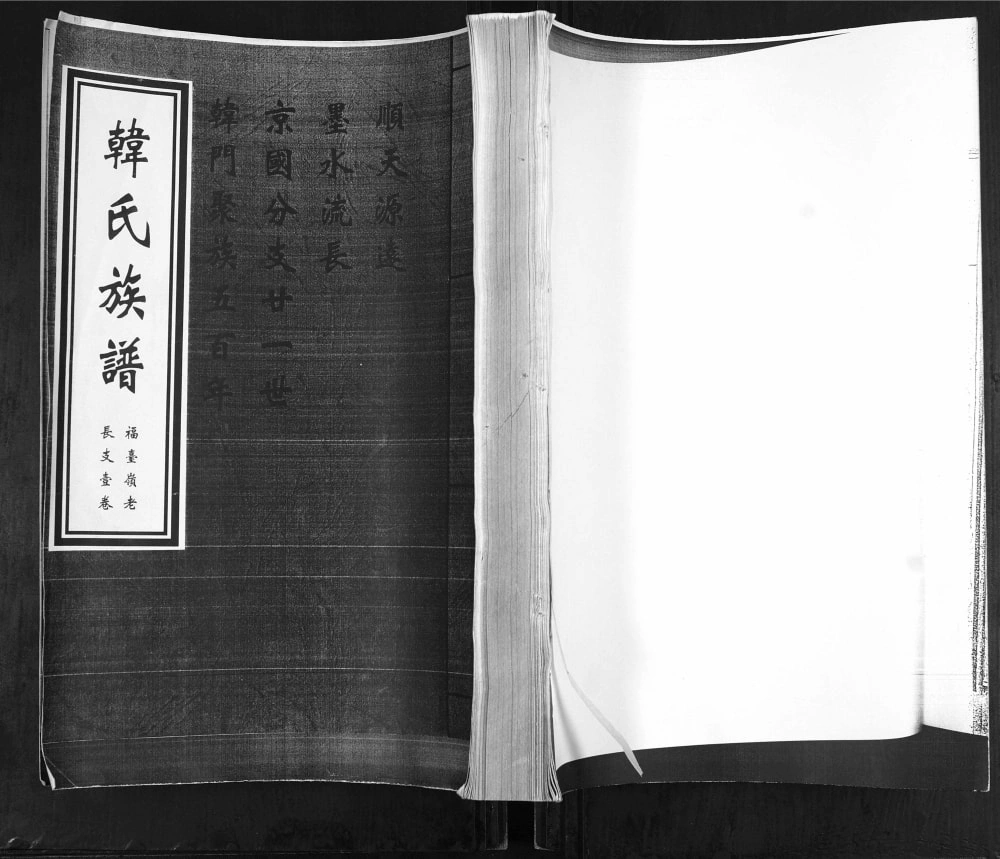 順天源遠
墨水流長
京國分支廿一世
韓門聚族五百年
韓氏族譜
福臺嶺老
長支壹卷